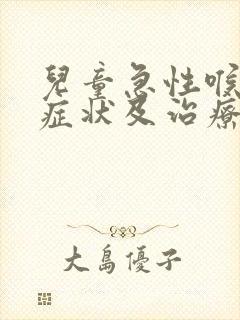 兒童急性喉
症状及治療
大島優子